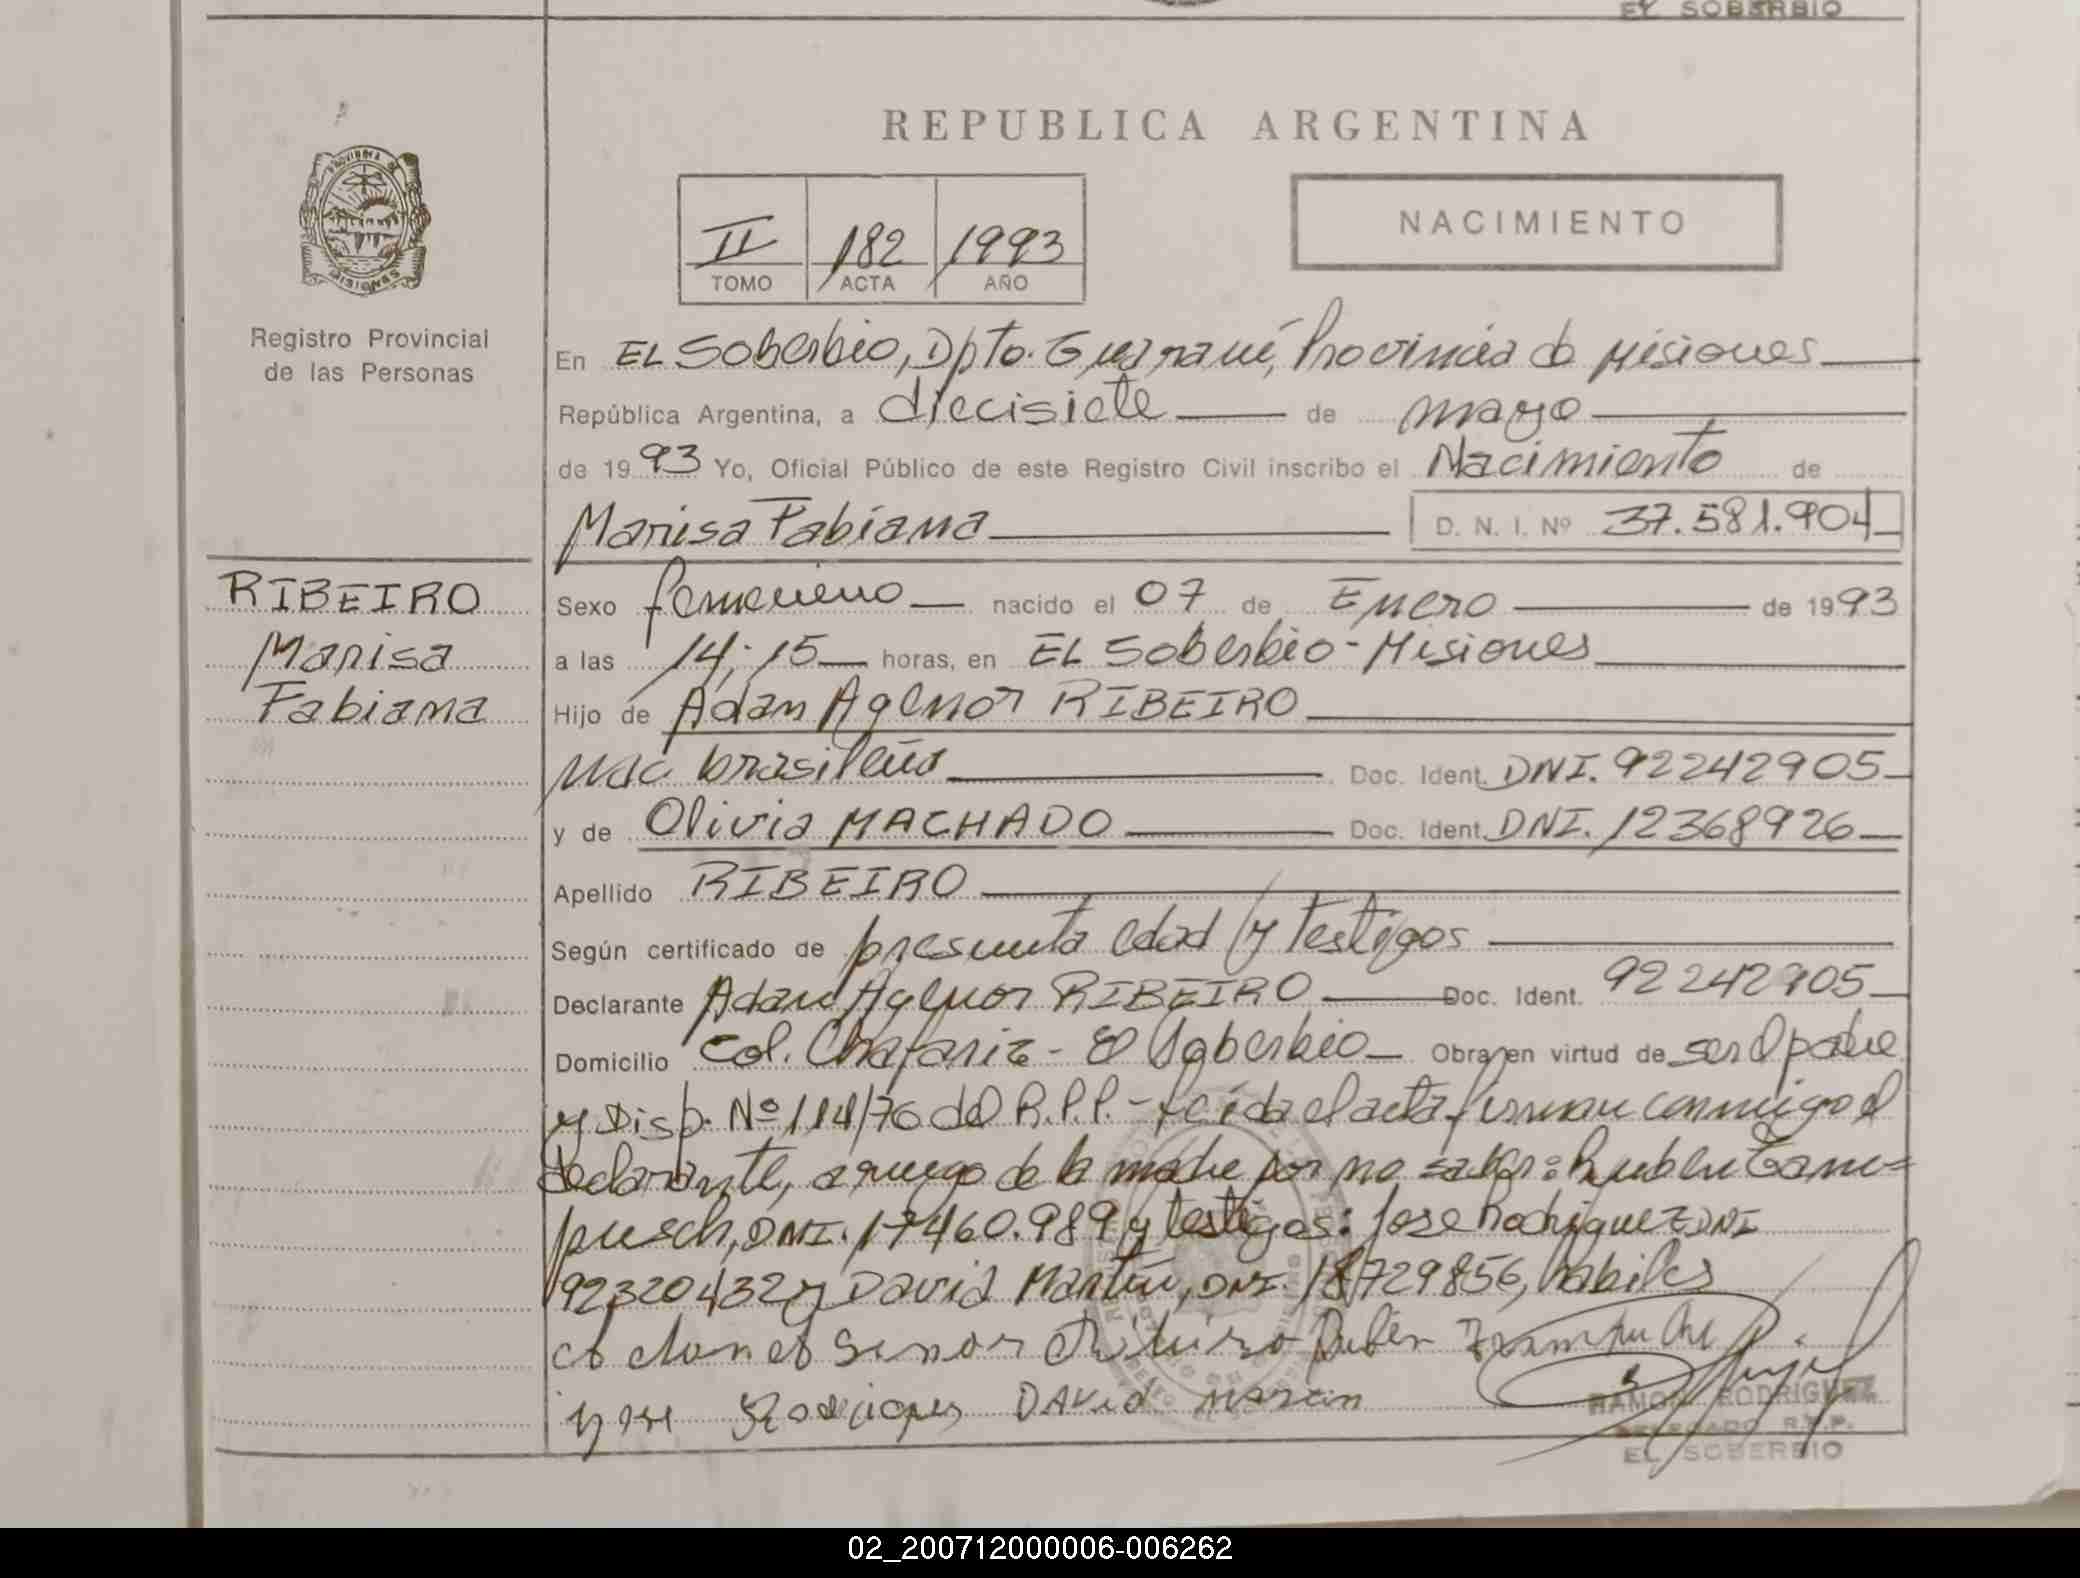 EL SOBERBIO
REPUBLICA ARGENTINA
PROVINCIA DE
MISIONES
II 182 1993
TOMO ACTA AÑO
NACIMIENTO
Registro Provincial
de las Personas
En EL Soberbio, Dpto. Guaraní, Provincia de Misiones
República Argentina, a diecisiete de mayo
de 1993 Yo, Oficial Público de este Registro Civil inscribo el Nacimiento de
Marisa Fabiana D. N. I. Nº 37.581.904
RIBEIRO
Marisa
Fabiana
Sexo femenino nacido el 07 de Enero de 1993
a las 14,15 horas, en EL Soberbio - Misiones
Hijo de Adan Agenor RIBEIRO
Nac. brasileña Doc. Ident. DNI. 92242905
y de Olivia MACHADO Doc. Ident. DNI. 12368926
Apellido RIBEIRO
Según certificado de presunta edad y testigos
Declarante Adan Agenor RIBEIRO Doc. Ident. 92242905
Domicilio Col. Chafariz - El Soberbio Obra en virtud de ser el padre
y Disp. Nº 114/76 del R.P.P. - Leída el acta firman conmigo el
declarante, a ruego de la madre por no saber: Ruben
DNI. 17460.989 y testigos: Jose Rodriguez DNI
92320432 y David Martin, DNI. 18729856, habiles
Ruben
Jose Rodrigues David Martin
RAMON RODRIGUEZ
DELEGADO R.P.P.
EL SOBERBIO
02_200712000006-006262